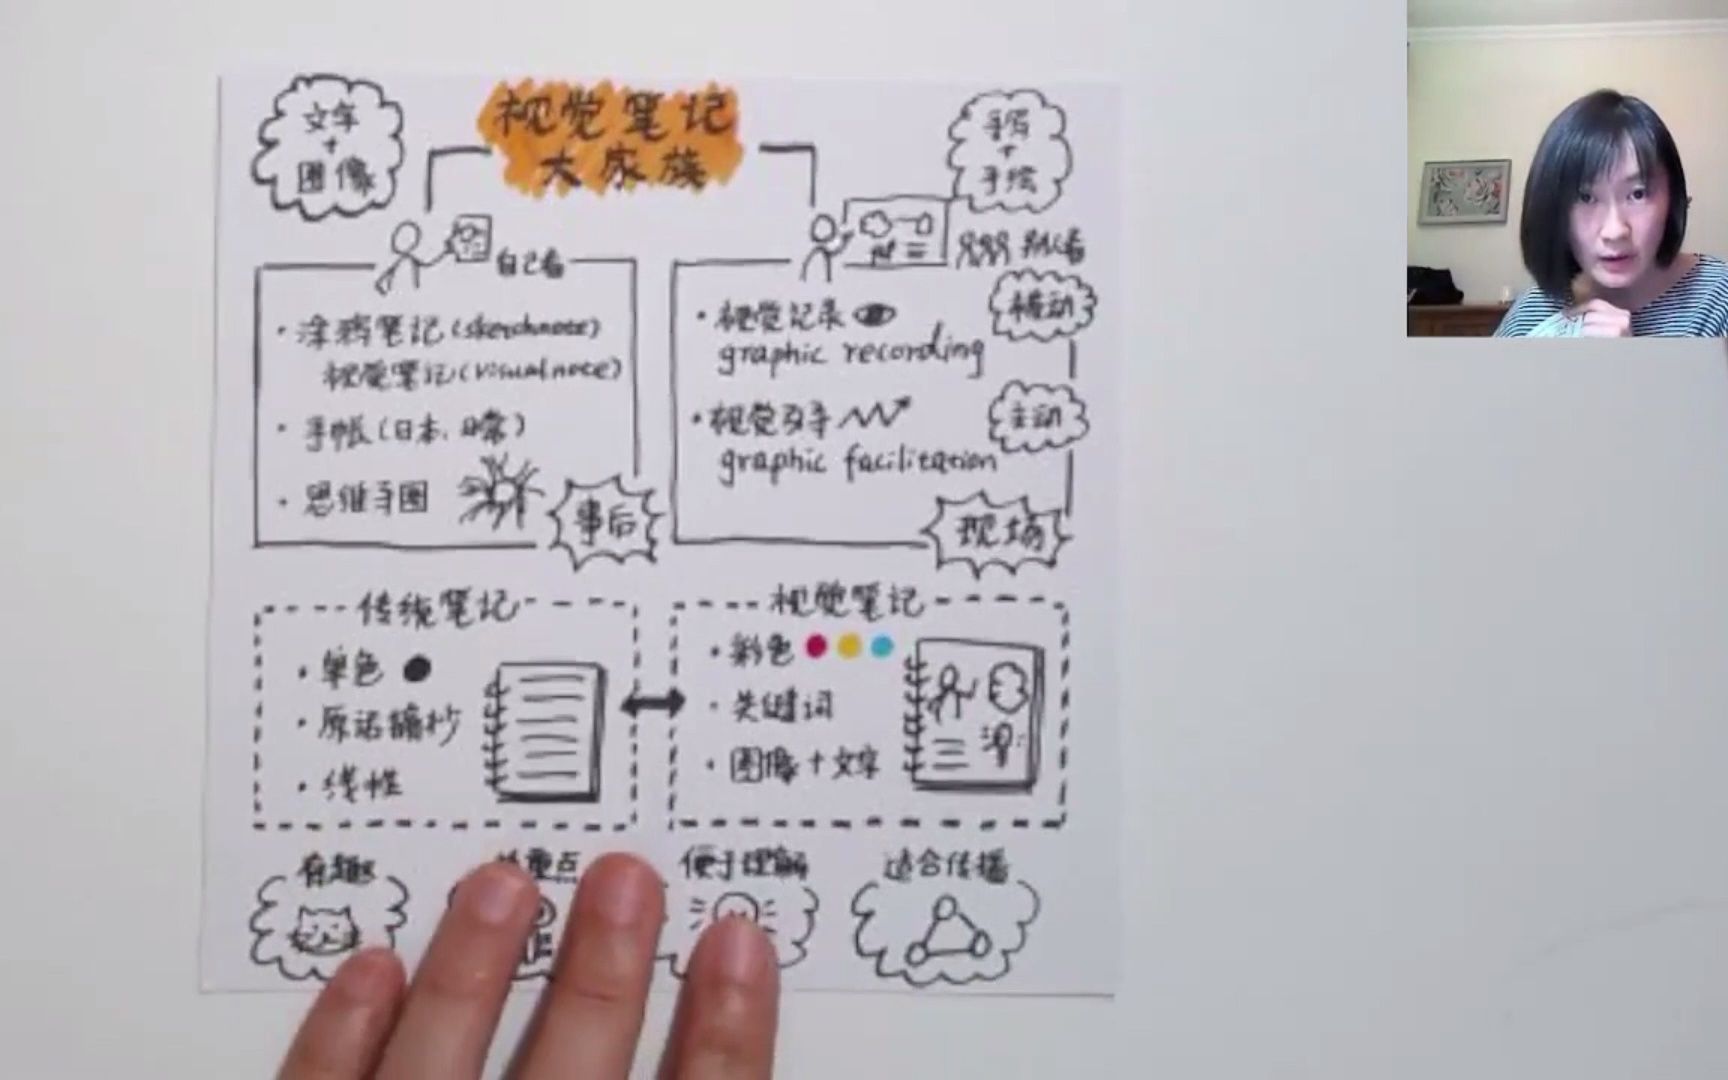 文字
+
图像
视觉笔记
大家族
手写
+
手绘
自己看
别人看
· 涂鸦笔记(sketchnote)
视觉笔记(visualnote)
· 手帐(日本、日常)
· 思维导图
事后
· 视觉记录
graphic recording
被动
· 视觉引导
graphic facilitation
主动
现场
传统笔记
· 单色
· 原话摘抄
· 线性
视觉笔记
· 彩色
· 关键词
· 图像+文字
有趣
重点
便于理解
适合传播